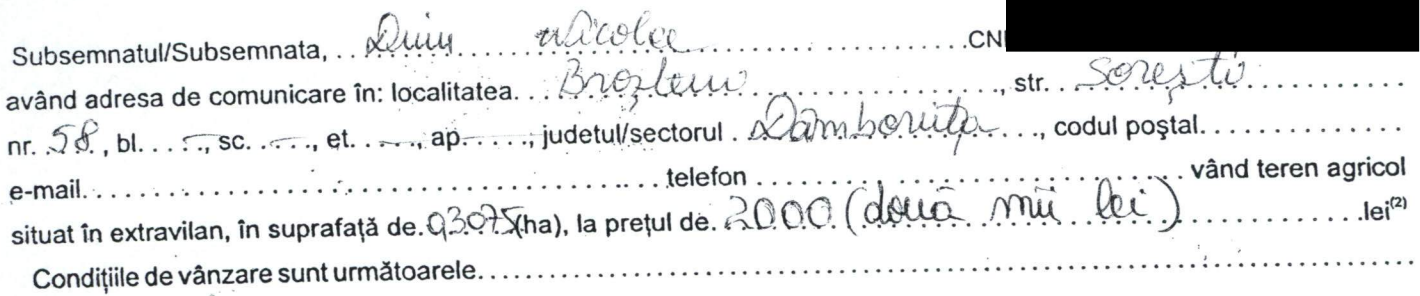 Subsemnatul/Subsemnata, . . Duiu nicolee . . . . . . . . . . . . . . . . .CNI
având adresa de comunicare în: localitatea. . . Brezteni . . . . . . . . . . . . . . . . ., str. . . Sorești . . . . . . . . . .
nr. .58. , bl. . . –., sc. . –. . ., et. . .–. . ., ap–. . . . .; judetul/sectorul . Dâmbovița . . ., codul poştal. . . . . . . . . . . . . . .
e-mail. . . . . . . . . . . . . . . . . . . . . . . . . . . . . . . . . . . . . . . . .telefon . . . . . . . . . . . . . . . . . . . . . . . . . . . . . . . vând teren agricol
situat în extravilan, în suprafață de.0,3075(ha), la prețul de. 2000 (două mii lei) . . . . . . . . . . . . .lei⁽²⁾
Condițiile de vânzare sunt următoarele. . . . . . . . . . . . . . . . . . . . . . . . . . . . . . . . . . . . . . . . . . . . . . . . . . . . . . . . . . . . . . . . . . .